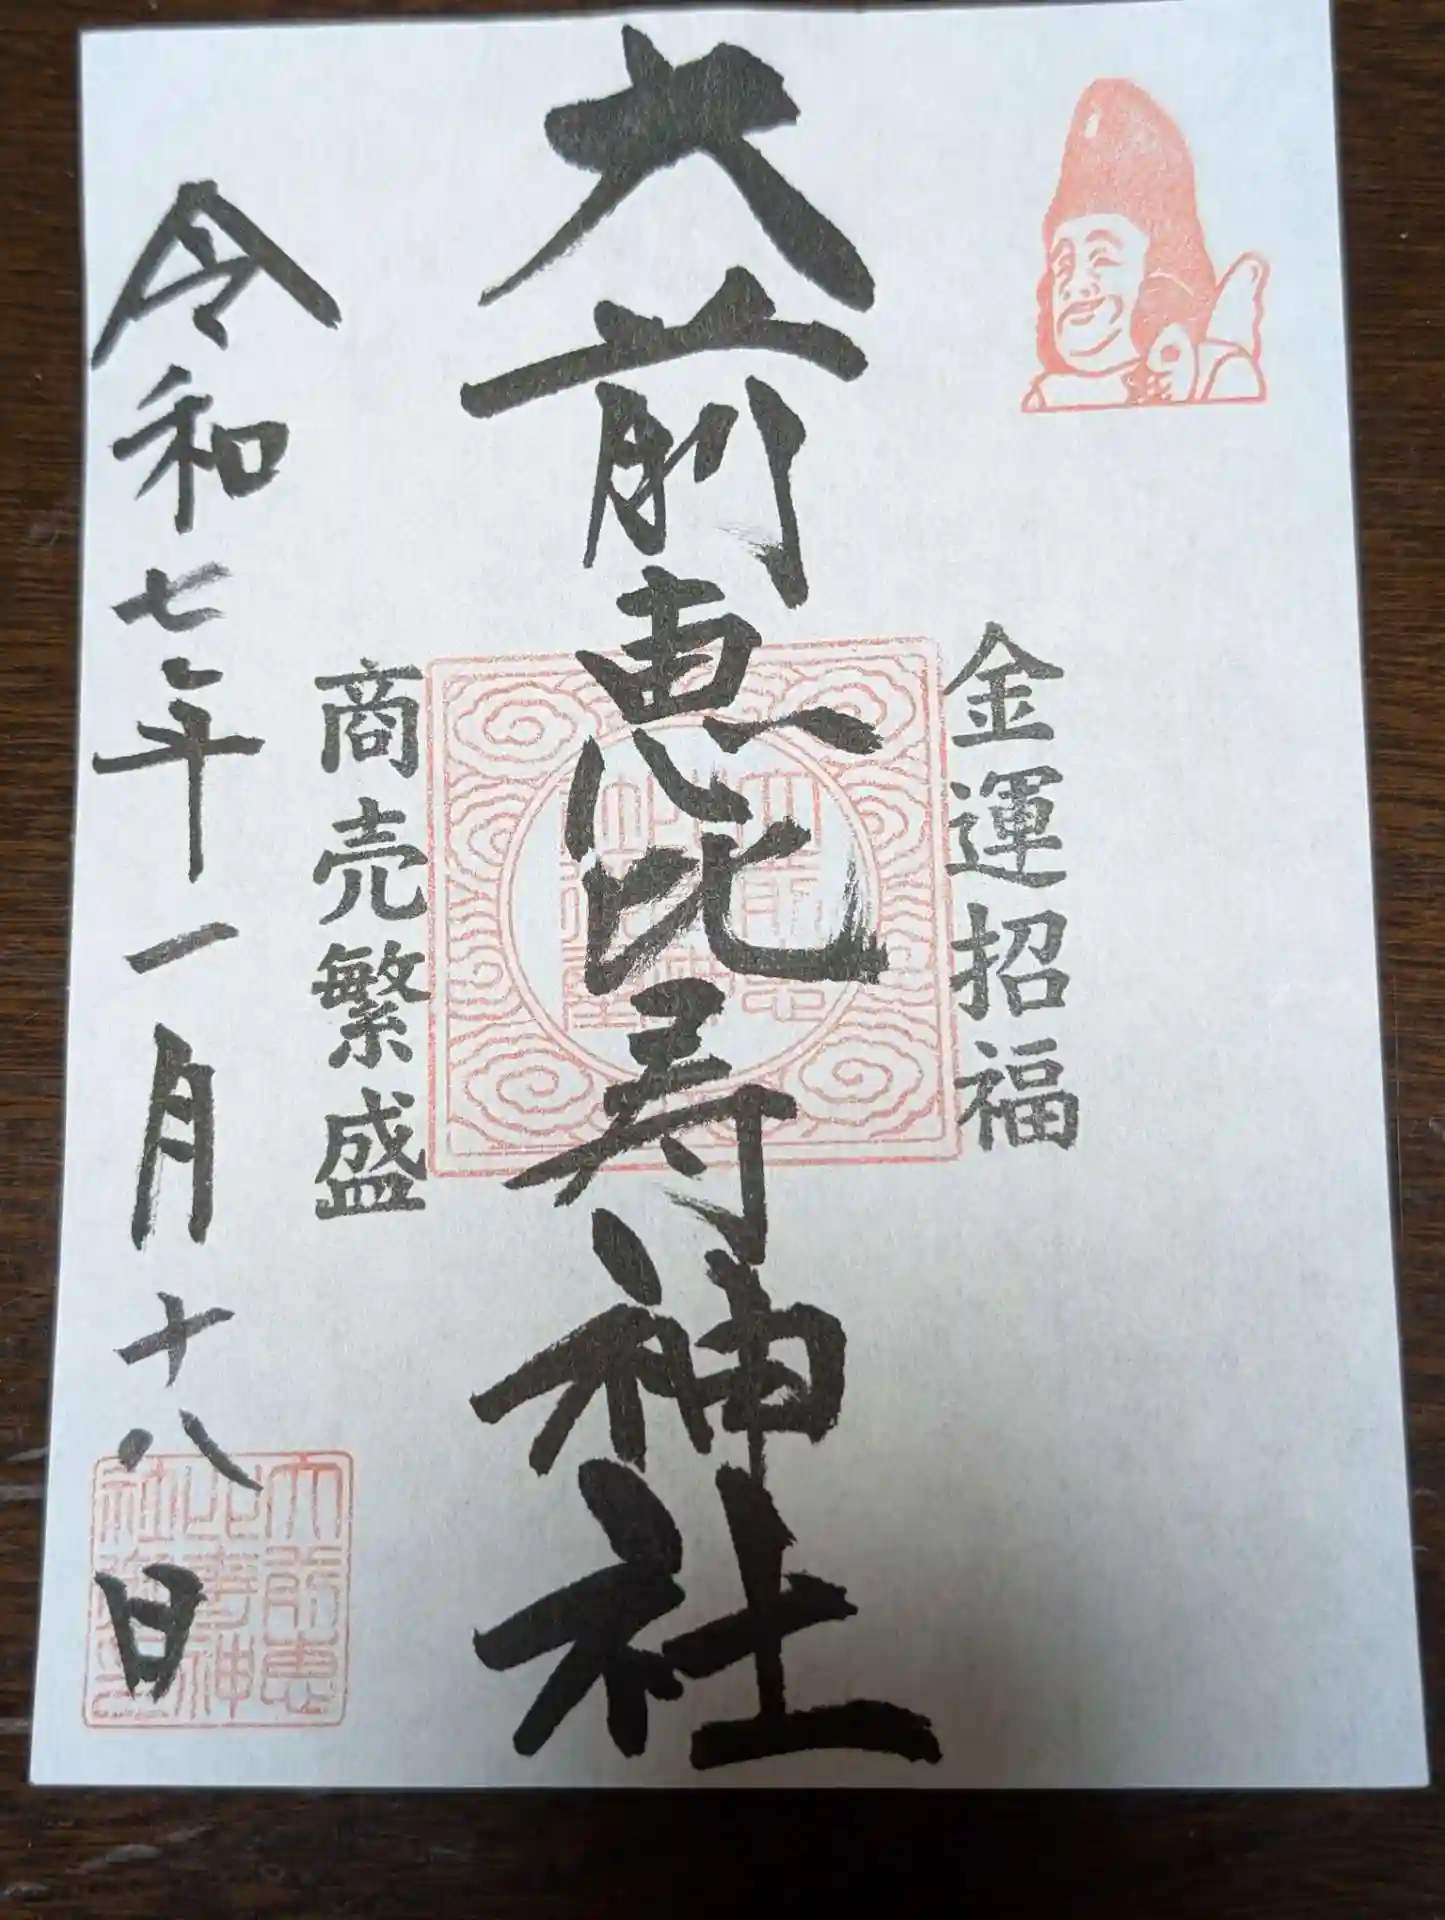 金運招福
大前恵比寿神社
商売繁盛
令和七年一月十八日
大前恵
比寿神
社